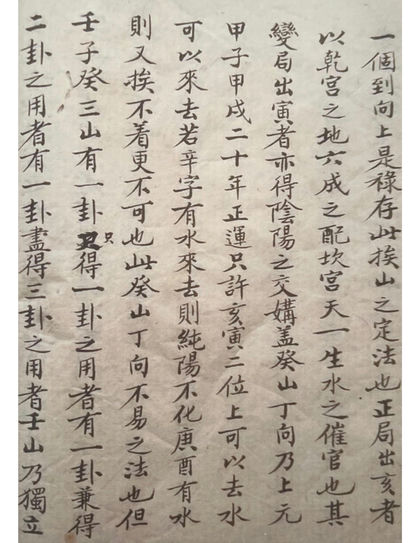 一個到向上是祿存此挨山之定法也正局出亥者
以乾宮之地六成之配坎宮天一生水之催官也其
變局出寅者亦得陰陽之交媾蓋癸山丁向乃上元
甲子甲戌二十年正運只許亥寅二位上可以去水
可以來去若辛字有水來去則純陽不化庚酉有水
則又挨不着更不可也此癸山丁向不易之法也但
壬子癸三山有一卦只得一卦之用者有一卦兼得
二卦之用者有一卦盡得三卦之用者壬山乃獨立